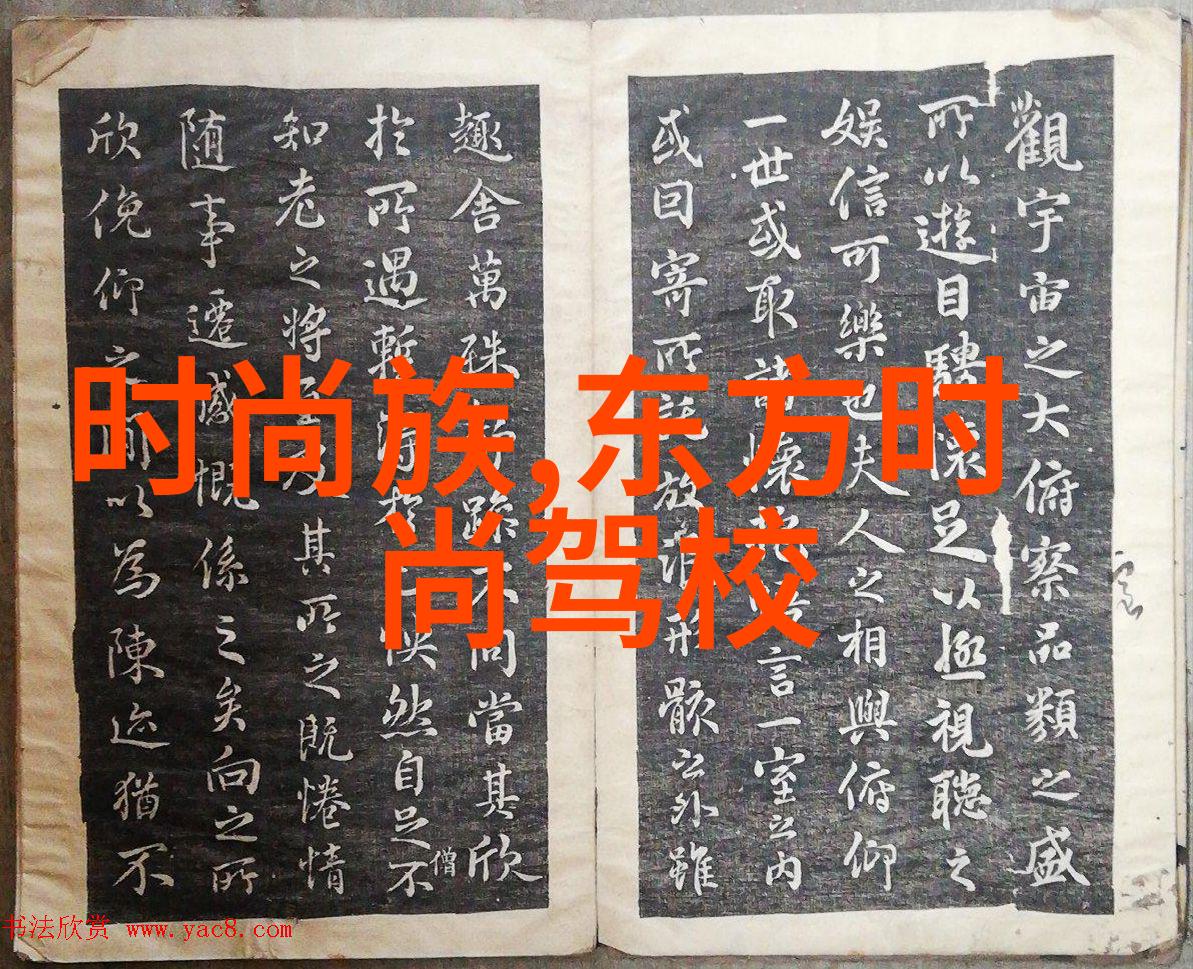 时尚族,东方时
尚驾校
觀宇宙之大俯察品類之盛
所以遊目騁懷足以極視聽之
娛信可樂也夫人之相與俯仰
一世或取諸懷言一室之內
或因寄所託放浪形骸之外雖
趣舍萬殊躁不同當其欣
於所遇暫得於快然自足不
僧
知老之將至及其所之既惓情
随事遷感慨係之矣向之所
欣俛仰之間以為陳迹猶不
书法欣赏 www.yac8.com